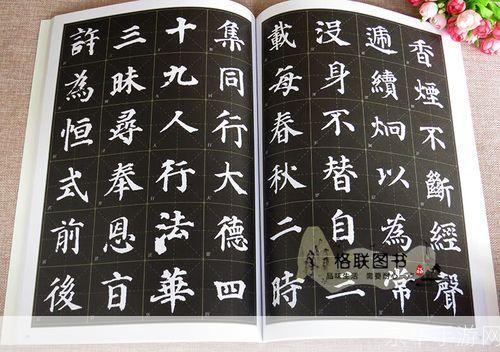 香煙不斷經聲
遞續炯以為常
没身不替自三
載每春秋二時
集同行大德四
十九人行法華
三昧尋奉恩旨
許為恒式前後
格联图书
品味生活